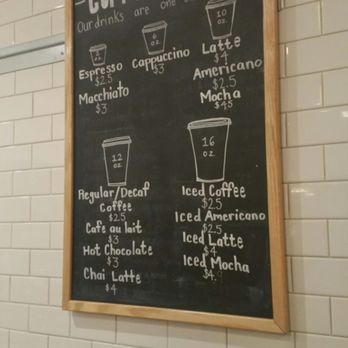 Our drinks are one
2 oz
6 oz
10 oz
Espresso
$2.5
Macchiato
$3
Cappuccino
$3
Latte
$4
Americano
$2.5
Mocha
$4.5
12 oz
16 oz
Regular/Decaf
Coffee
$2.5
Cafe au lait
$3
Hot Chocolate
$3
Chai Latte
$4
Iced Coffee
$2.5
Iced Americano
$2.5
Iced Latte
$4
Iced Mocha